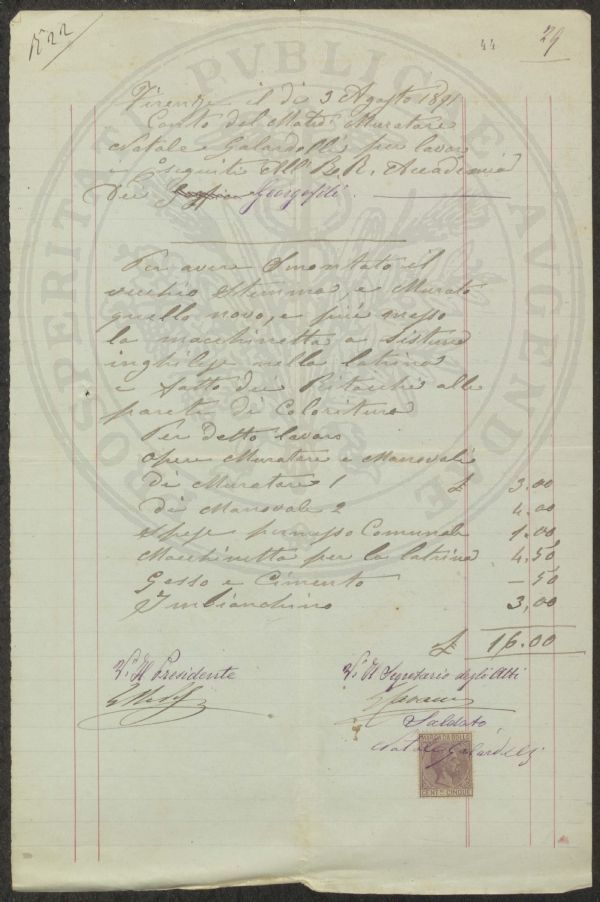 1522
44
29
Firenze il dì 3 Agosto 1891
Conto del Mastro Muratore
Natale Galardelli per lavori
eseguiti All' R. R. Accademia
Dei Georgofili
Per avere Smontato il
vecchio Stemma, e Murato
quello novo, e più messo
la macchinetta a Sistema
inghilese nella latrina
e fatto dei Ritocchi alle
parete di Coloritura
Per detto lavoro
opere Muratore e Manovali
di Muratore 1 £ 3.00
di Manovale 2 4.00
Spese permesso Comunale 1.00
Macchinetta per la latrina 4,50
Gesso e Cimento – 50
Imbianchino 3,00
£ 16.00
V. Il Presidente
V. Il Segretario degli Atti
Saldato
Natale Galardelli
MARCA DA BOLLO
CENT. CINQUE
PROSPERITATI PVBLICAE AVGENDAE